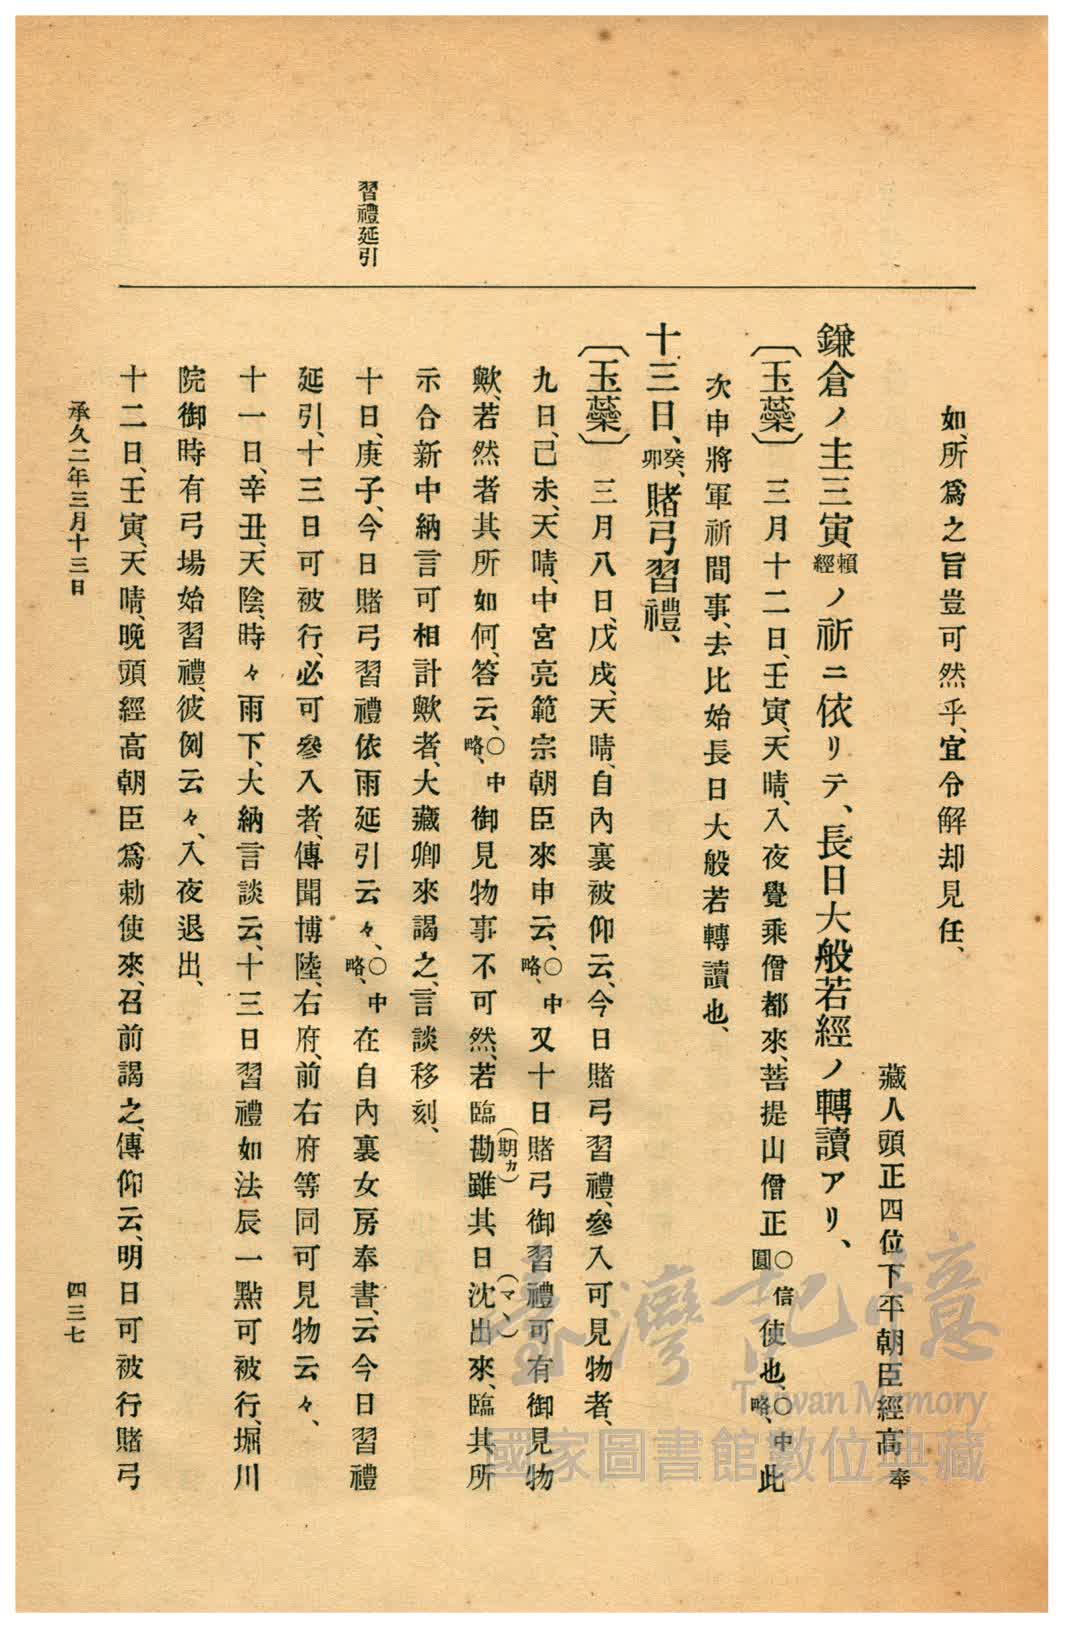 如、所爲之旨豈可然乎、宜令解却見任、
藏人頭正四位下平朝臣經高奉
鎌倉ノ主三寅賴經ノ祈ニ依リテ、長日大般若經ノ轉讀アリ、
〔玉蘂〕　三月十二日、壬寅、天晴、入夜覺乘僧都來、菩提山僧正○信圓使也、○中略、此
次申將軍祈間事、去比始長日大般若轉讀也、
十三日、癸卯、賭弓習禮、
〔玉蘂〕　三月八日、戊戌、天晴、自內裏被仰云、今日賭弓習禮、參入可見物者、
九日、己未、天晴、中宮亮範宗朝臣來申云、○中略、又十日賭弓御習禮可有御見物
歟、若然者其所如何、答云、○中略、御見物事不可然、若臨勘(期カ)雖其日沈(マヽ)出來、臨其所
示合新中納言可相計歟者、大藏卿來謁之、言談移刻、
習禮延引
十日、庚子、今日賭弓習禮依雨延引云々、○中略、在自內裏女房奉書、云今日習禮
延引、十三日可被行、必可參入者、傳聞博陸、右府、前右府等同可見物云々、
十一日、辛丑、天陰、時々雨下、大納言談云、十三日習禮如法辰一點可被行、堀川
院御時有弓場始習禮、彼例云々、入夜退出、
十二日、壬寅、天晴、晩頭經高朝臣爲勅使來、召前謁之、傳仰云、明日可被行賭弓
承久二年三月十三日
四三七
臺灣記憶
Taiwan Memory
國家圖書館數位典藏